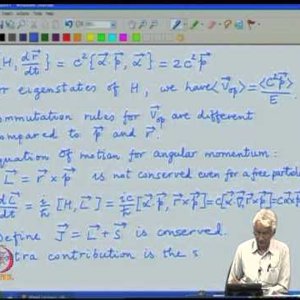 {H, dr⃗/dt} = c²{α⃗·p⃗, α⃗} = 2c²p⃗
or eigenstates of H, we have ⟨v⃗op⟩ = ⟨c²p⃗⟩/E.
ommutation rules for v⃗op are different
ompared to p⃗ and r⃗.
quation of motion for angular momentum:
L⃗ = r⃗ × p⃗ is not conserved even for a free particle
dL⃗/dt = i/ħ [H, L⃗] = ic/ħ [α⃗·p⃗, r⃗×p⃗] =
Define J⃗ = L⃗ + S⃗ is conserved.
tra contribution is the s